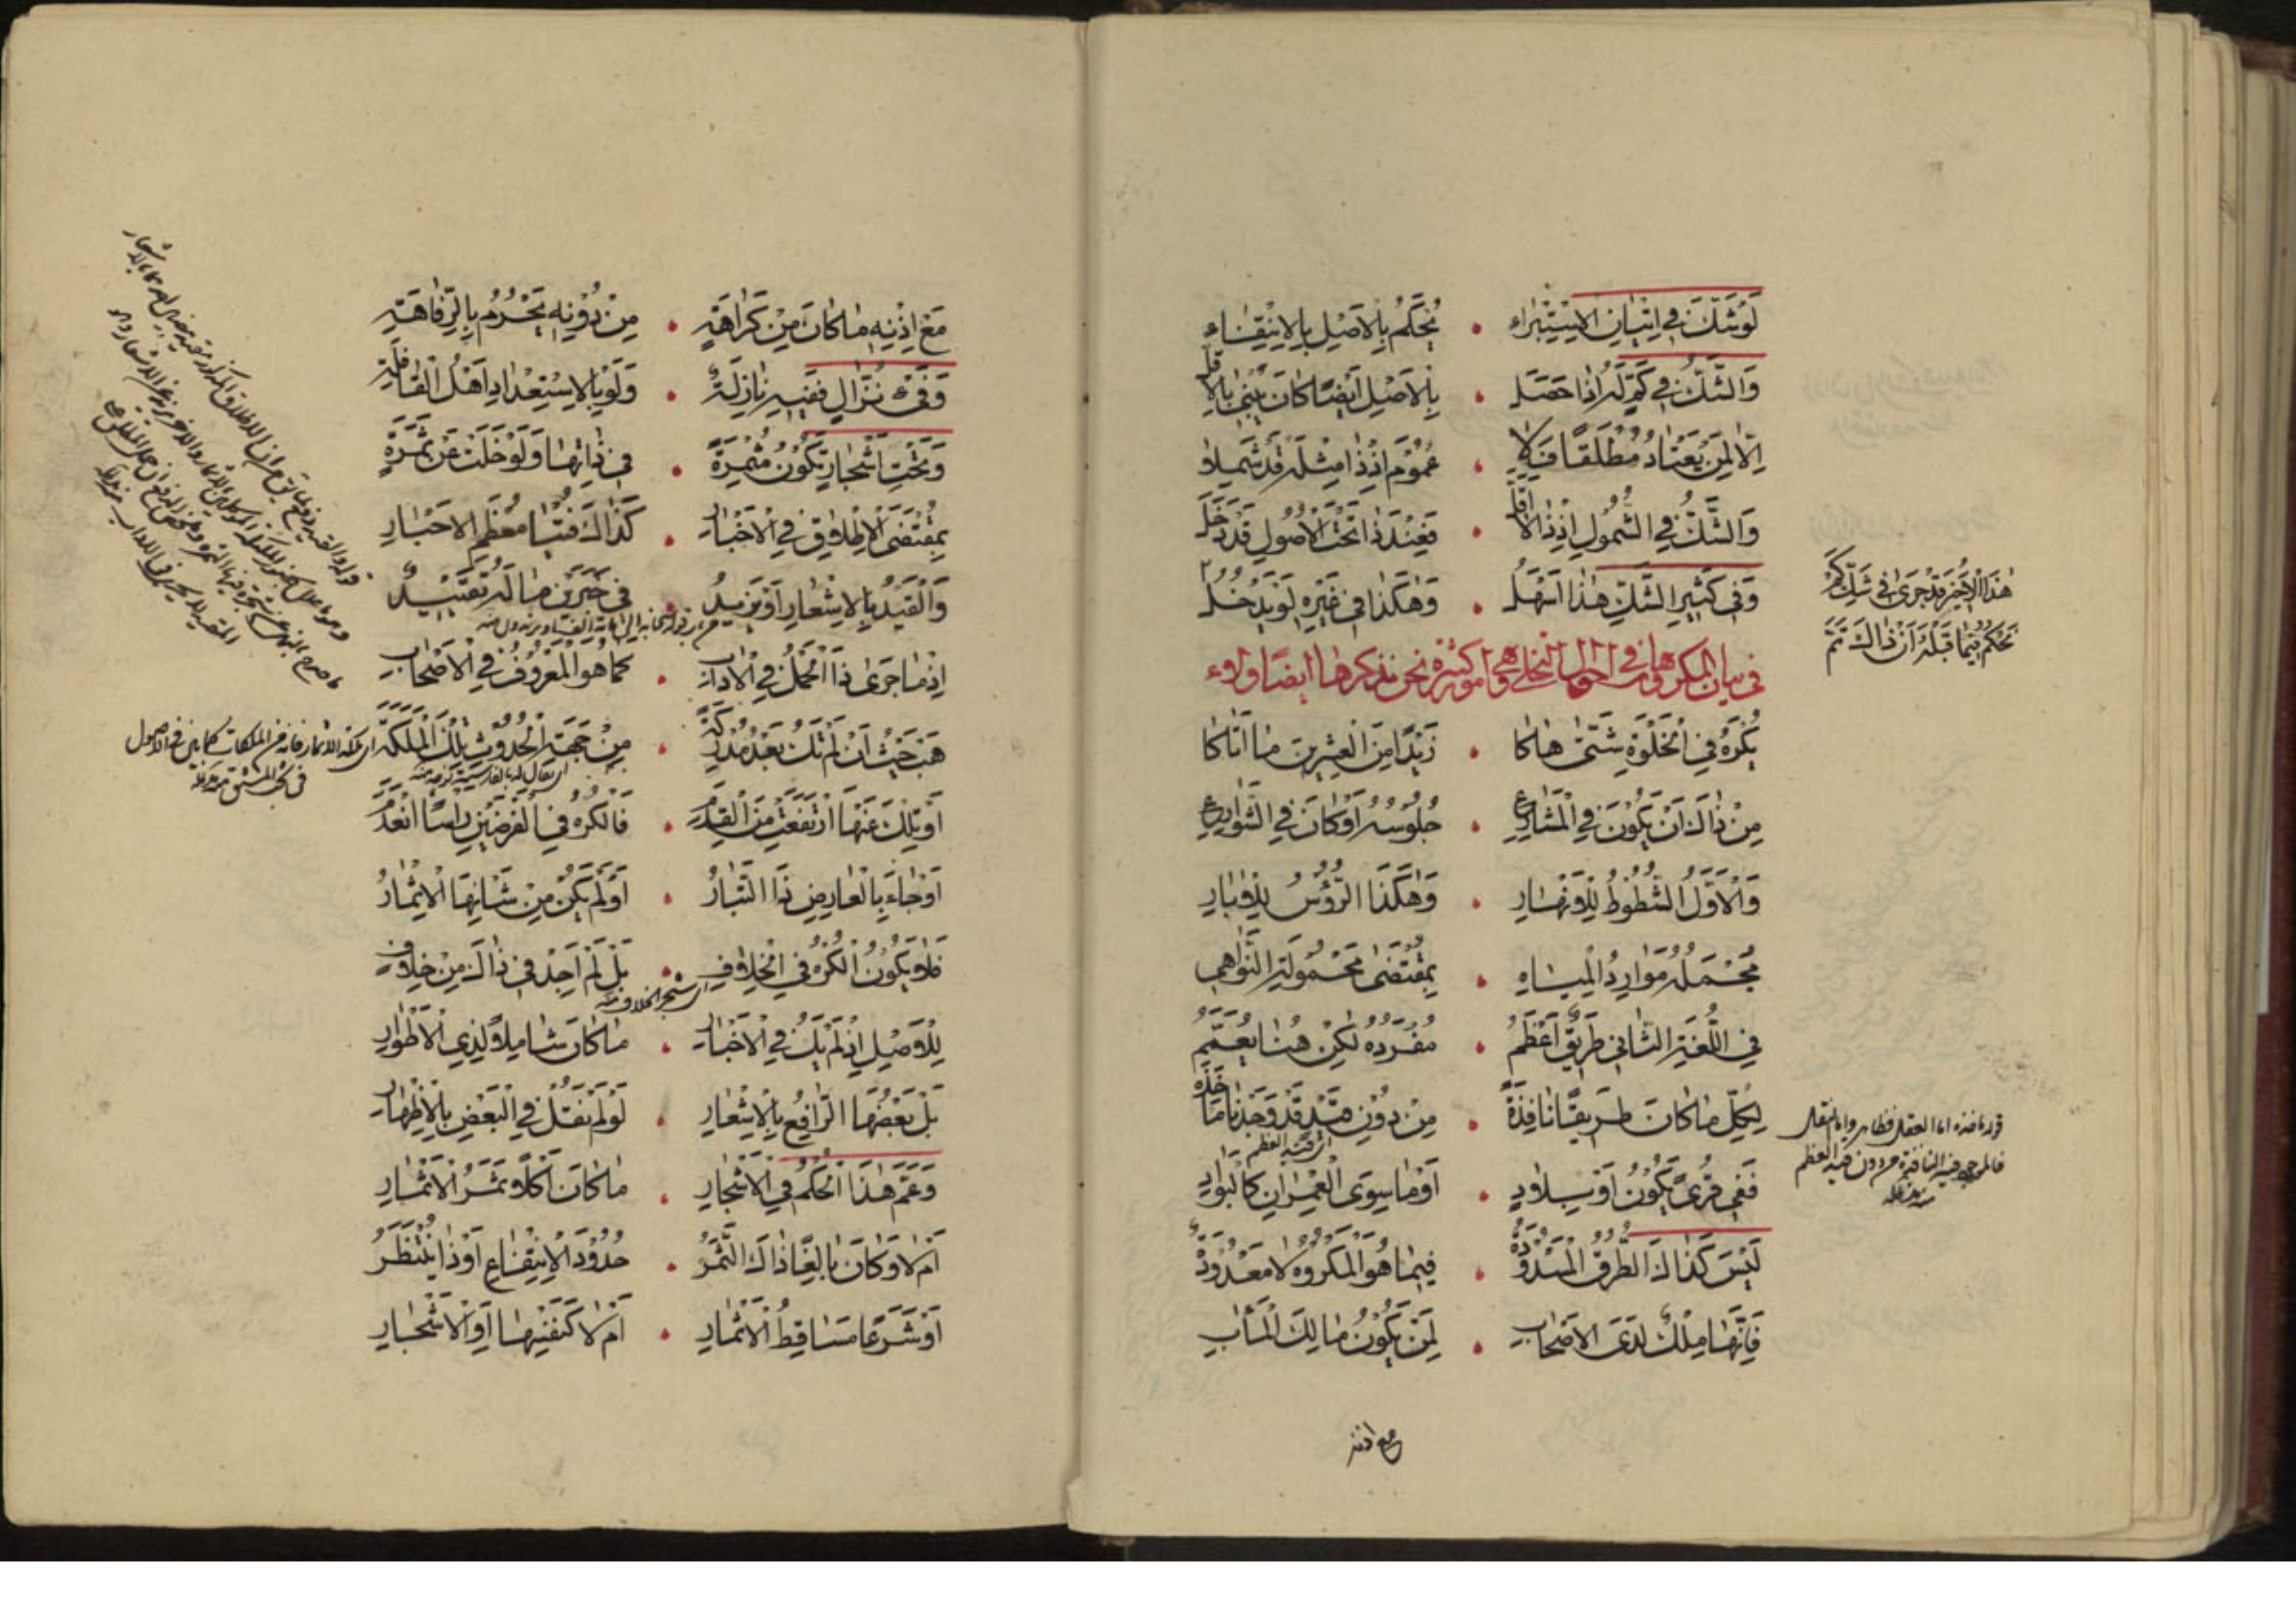 لَوْ شَكَّ فِي اِتْيَانِ الْاِسْتِبْرَاءِ . يُحْكَمُ بِالْاَصْلِ بِالْاِنْتِفَاءِ
وَالشَّكُّ فِي كَمٍّ لَهُ اِذَا حَصَلَ . بِالْاَصْلِ اَيْضًا كَانَ يُبْنَى بِالْاَقَلّ
اِلَّا لِمَنْ يَعْتَادُ مُطْلَقًا فَلَا . عُمُوْمَ اِذْ ذَا مِثْلَهُ قَدْ شَمِلَا
وَالشَّكُّ فِي الشُّمُولِ اِذْ ذَا لَا اَقَلّ . فَعِنْدَ ذَا تَحْتَ الْاُصُولِ قَدْ دَخَلَ
وَفِي كَثِيرِ الشَّكِّ هٰذَا اَسْهَلُ . وَهٰكَذَا فِي غَيْرِهِ لَوْ يَدْخُلُ
هٰذَا الْاَخِيْرُ قَدْ جَرَىٰ فِي شَكِّ كَمْ
نَحْكُمُ فِيمَا قَبْلَهُ اَنْ ذَاكَ تَمّ
فى بيان المكروهات فى احوال التخلى وهى امور كثيرة نحن نذكرها ايضا ولاء
يُكْرَهُ فِي الْخَلْوَةِ شَتَّىٰ هَاكَا . زَيْدًا مِنَ الْعِشْرِينَ مَا اَتَاكَا
مِنْ ذَاكَ اَنْ يَكُوْنَ فِي الْمَشَارِعِ . جُلُوسُهُ اَوْ كَانَ فِي الشَّوَارِعِ
وَالْاَوَّلُ الشُّطُوطُ لِلْاَنْهَارِ . وَهٰكَذَا الرُّؤُسُ لِلْاٰبَارِ
مُجْمَلُهُ مَوَارِدُ الْمِيَاهِ . بِمُقْتَضَىٰ مَحْمُولَةِ النَّوَاهِي
فِي اللُّغَةِ الثَّانِي طَرِيقٌ اَعْظَمُ . مُفْرَدُهُ لٰكِنْ هُنَا يُعَمَّمُ
لِكُلِّ مَا كَانَ طَرِيقًا نَافِذَةً . مِنْ دُوْنِ قَيْدٍ قَدْ وَجَدْنَا مَاخَذَهُ
اى قيد العظم
قوله نافذه اما العقل فظاهر واما النقل
فالموجود فيه النافذة من دون قيد العظم
فَفِي قُرًى يَكُوْنُ اَوْ بِلَادٍ . اَوْ مَا سِوَى الْعِمْرَانِ كَالْبَوَادِ
لَيْسَ كَذَاكَ الطُّرُقُ الْمَسْدُوْدَةُ . فِيمَا هُوَ الْمَكْرُوْهُ لَا مَعْدُوْدَةٌ
فَاِنَّهَا مِلْكٌ لَدَى الْاَصْحَابِ . لِمَنْ يَكُوْنُ مَالِكَ الْمَـاٰبِ
مع اذنه
مَعْ اِذْنِهِ مَا كَانَ مِنْ كَرَاهَةٍ . مِنْ دُوْنِهِ يَحْرُمُ بِالرَّفَاهَةِ
وَفَيْءِ نُزَّالٍ فَفِيهِ نَازِلَةٌ . وَلَوْ بِالِاسْتِعْدَادِ اَهْلُ الْقَافِلَةِ
وَتَحْتِ اَشْجَارٍ تَكُوْنُ مُثْمِرَةً . فِي ذَاتِهَا وَلَوْ خَلَتْ عَنْ ثَمَرَةٍ
بِمُقْتَضَى الْاِطْلَاقِ فِي الْاَخْبَارِ . كَذَاكَ فُتْيَا مُعْظَمِ الْاَحْبَارِ
وَالْقَيْدُ بِالْاِشْعَارِ اَوْ يَزِيدُ . فِي خَبَرَيْنِ مَا لَهُ تَقْيِيْدٌ
اِذْ مَا جَرَىٰ ذَا الْحَمْلُ فِي الْاٰدَابِ . كَمَا هُوَ الْمَعْرُوْفُ فِي الْاَصْحَابِ
هَبْ حَيْثُ اَنْ لَمْ تَكُ بَعْدُ مُدْرِكَةً . مِنْ جَهَةِ الْحُدُوْثِ تِلْكَ الْمَلَكَةَ
فى بحث المشتق
اَوْ تِلْكَ عَنْهَا ارْتَفَعَتْ مِنَ الْقِدَمِ . فَالْكُرْهُ فِي الْفَرْضَيْنِ رَاْسًا انْعَدَمَ
اَوْ جَاءَ بِالْعَارِضِ ذَا التَّبَارُ . اَوْ لَمْ يَكُنْ مِنْ شَانِهَا الْاِثْمَارُ
فَلَا يَكُوْنُ الْكُرْهُ فِي الْخِلَافِ . بَلْ لَمْ اَجِدْ فِي ذَاكَ مِنْ خِلَافٍ
اى شجر الخلاف منه
لِلْاَصْلِ اِذْ لَمْ يَكُ فِي الْاَخْبَارِ . مَا كَانَ شَامِلًا لِذِي الْاَطْوَارِ
بَلْ بَعْضُهَا الرَّافِعُ بِالْاِشْعَارِ . لَوْ لَمْ نَقُلْ فِي الْبَعْضِ بِالْاِظْهَارِ
وَعَمَّ هٰذَا الْحُكْمُ فِي الْاَشْجَارِ . مَا كَانَ اَكْلًا ثَمَرُ الْاَثْمَارِ
اَمْ لَا وَكَانَ بَالِغًا ذَاكَ الثَّمَرُ . حُدُوْدَ الْاِنْتِفَاعِ اَوْ ذَا يُنْتَظَرُ
اَوْ شَرَعًا مَسَاقِطُ الْاَثْمَارِ . اَمْ لَا كَنَفَيْهَا اَوِ الْاَشْجَارِ